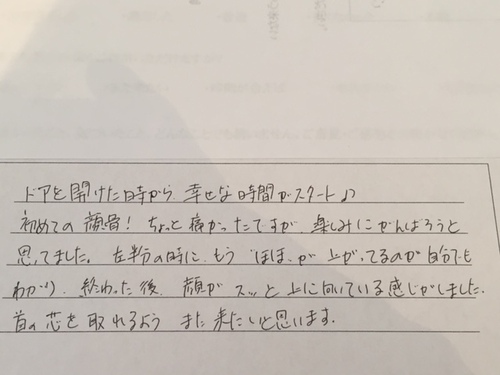 ドアを開けた時から、幸せな時間がスタート♪
初めての顔骨！ちょっと痛かったですが、楽しみにがんばろうと
思ってました。左半分の時に、もう"ほほ"が上がってるのが自分でも
わかり、終わった後、顔がスッと上に向いている感じがしました。
首の芯を取れるようまた来たいと思います。